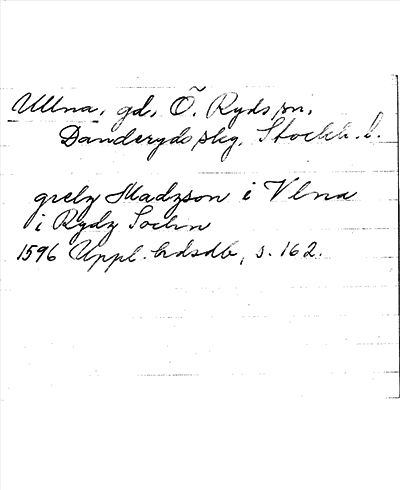 Ullna, gd, Ö. Ryds sn,
Danderyds slg, Stockh. l.
grelz Madzson i Vlna
i Rydz Sochn
1596 Uppl. hdsdb, s. 162.